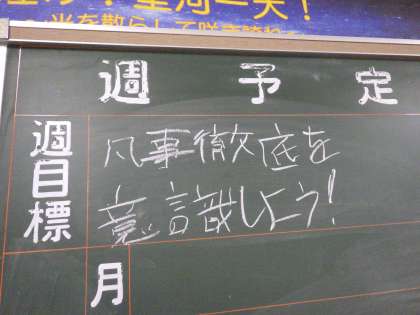 星河一天！
光を散らして咲き誇れ
週予定
週目標
凡事徹底を
意識しよう！
月